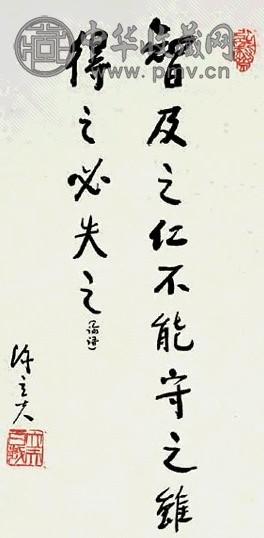 智及之仁不能守之雖
得之必失之(論語)
陳立夫
中华收藏网
www.pmv.cn